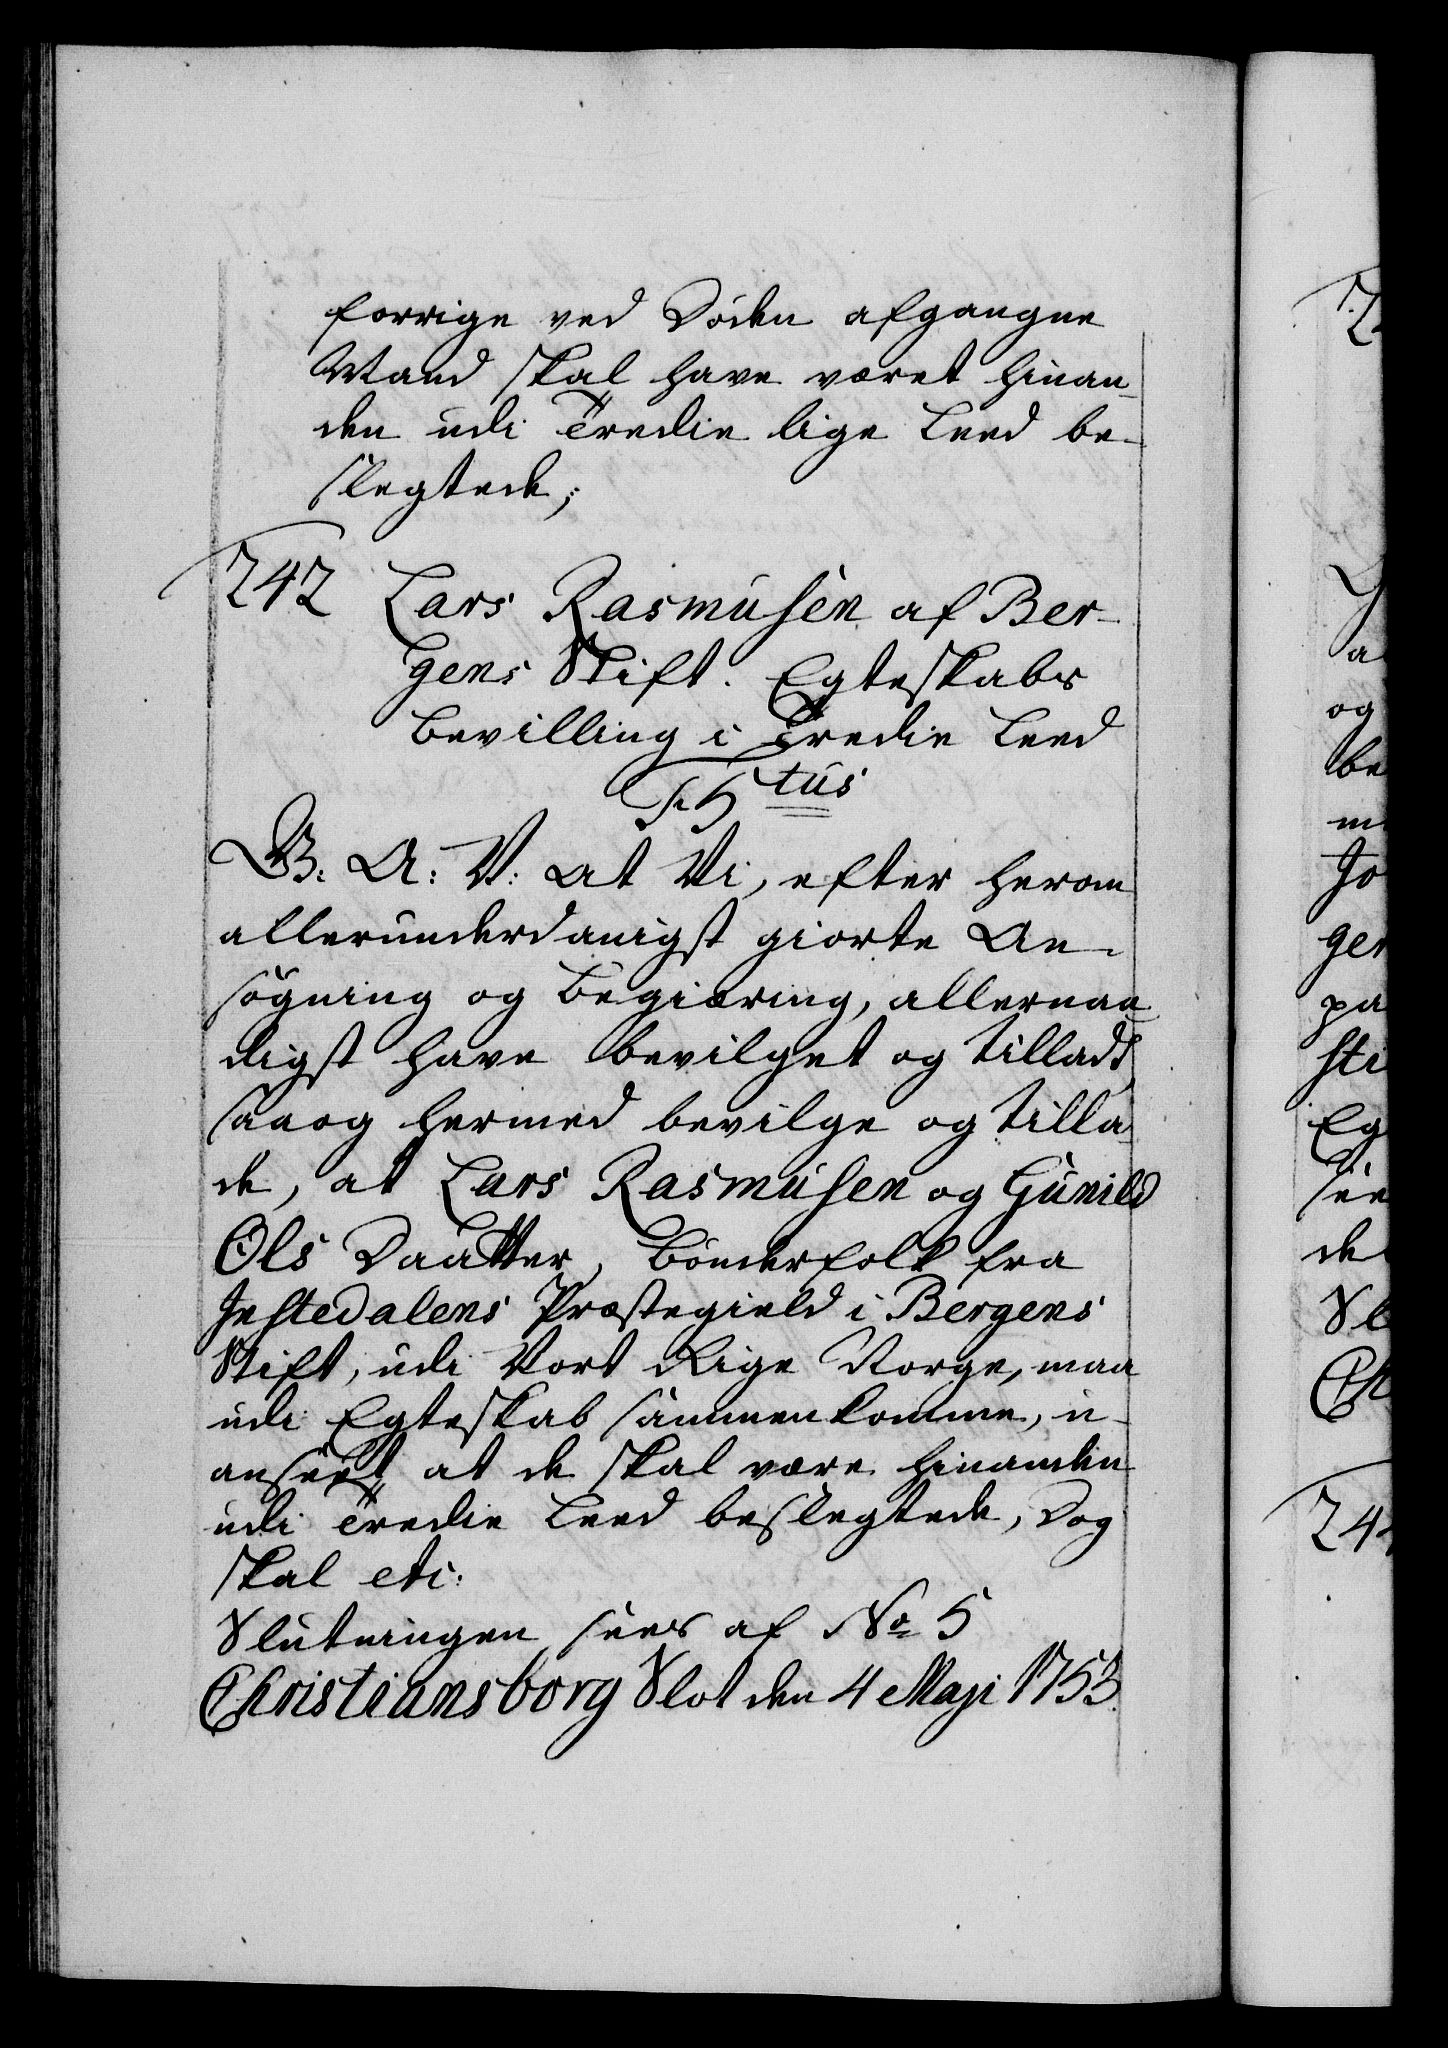 forrige ved Døden afgangne
Mand skal have været hinan-
den udi Tredie lige Leed be-
slegtede;
242 Lars Rasmusen af Ber-
gens Stift. Egteskabs
bevilling i Tredie Leed
F. 5tus
G: A: V: at Vi, efter herom
allerunderdanigst giorte An-
søgning og Begiæring, allernaa
digst have bevilget og tilladt
saa og hermed bevilge og tilla
de, at Lars Rasmusen og Gunild
Ols Daatter, Bønderfolk fra
Justedalens Præstegield i Bergens
Stift, udi Vort Rige Norge, maa
udi Egteskab sammenkomme, u-
anseet at de skal være hinanden
udi Tredie Leed beslegtede, Dog
skal etc:
Slutningen sees af No 5
Christiansborg Slot den 4 Maji 1753.